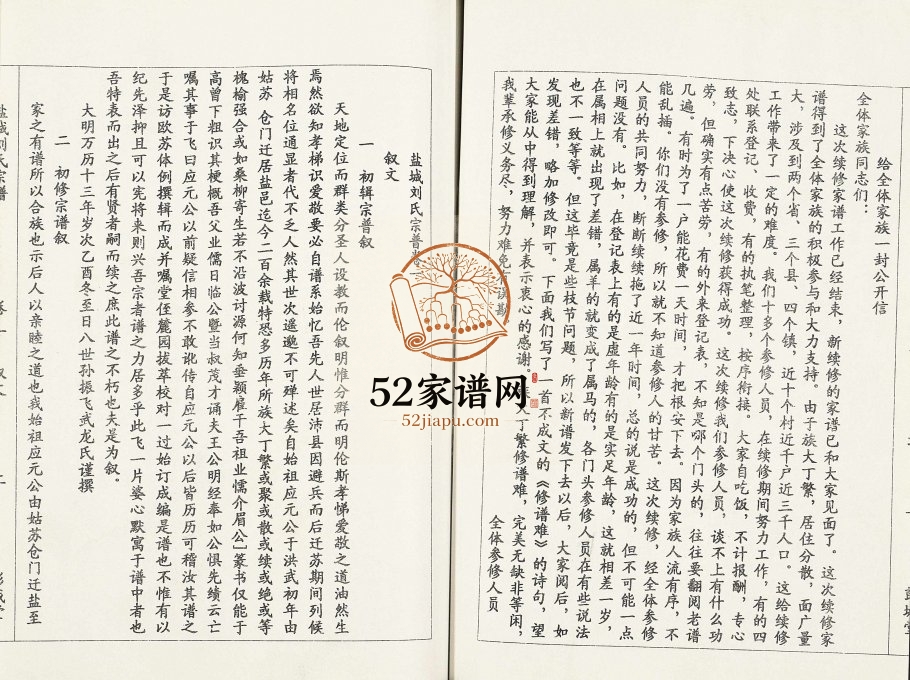 给全体家族一封公开信
全体家族同志们：
这次续修家谱工作已经结束，新续修的家谱已和大家见面了。这次续修家
谱得到了全体家族的积极参与和大力支持。由于族大丁繁，居住分散，面广量
大，涉及到两个省、三个县、四个镇，近十个村近千户近三千人口。这给续修
工作带来了一定的难度。我们十多个参修人员，在续修期间努力工作，有的四
处联系登记、收费，有的执笔整理，按序衔接。大家自吃饭，不计报酬，专心
致志，下决心使这次续修获得成功。这次续修我们参修人员，谈不上有什么功
劳，但确实有点苦劳，有的外来登记表，不知是哪个门头的，往往要翻阅老谱
几遍。有时为了一户能花费一天时间，才把根安下去。因为家族人流有序，不
能乱插。你们没有参修，所以就不知道参修人的甘苦。这次续修，经全体参修
人员的共同努力，断断续续拖了近一年时间，总的说是成功的，但不可能一点
问题没有。比如，在登记表上有的是虚年龄有的是实足年龄，这就相差一岁，
在属相上就出现了差错，属羊的就变成了属马的，各门头参修人员在有些说法
也不一致等等。但这毕竟是些枝节问题，所以新谱发下去以后，大家阅后，如
发现差错，略加修改即可。下面我们写了一首不成文的《修谱难》的诗句，望
大家能从中得到理解，并表示衷心的感谢。大丁繁修谱难，完美无缺非等闲，
我辈承修义务尽，努力难免
全体参修人员
盐城刘氏宗普卷
叙文
一 初辑宗普叙
天地定位而群类分圣人设教而伦叙明惟分群而明伦斯孝悌爱敬之道油然生
焉然欲知孝悌识爱敬要必自谱系始忆吾先人世居沛县因避兵而后迁苏期间列候
将相名位通显者代不乏人然其世次遥邈不可殚述矣自始祖应元公于洪武初年由
姑苏仓门迁居盐邑迄今二百余载特恐多历年所族大丁繁或聚或散或续或绝或等
槐榆强合或如桑柳寄生若不沿波讨源何知垂颖雇干吾祖业懦介眉公]篆书仅能于
高曾下粗识其梗概吾父业儒日临公暨当叔茂才诵夫王公明经奉如公惧先绩云亡
嘱其事于飞曰应元公以前疑信相参不敢讹传自应元公以后皆历历可稽汝其谱之
于是访欧苏体例撰辑而成并嘱堂侄麓园拔萃校对一过始订成编是谱也不惟有以
纪先泽抑且可以宪将来则兴吾宗者谱之力居多乎此飞一片婆心默寓于谱中者也
吾特表而出之后有贤者嗣而续之庶此谱之不朽也夫是为叙。
大明万历十三年岁次乙酉冬至日八世孙振飞甙龙氏谨撰
二 初修宗谱叙
家之有谱所以合族也示后人以亲睦之道也我始祖应元公由姑苏仓门迁盐至
盐城刘氏宗谱
52家谱网
52jiapu.com